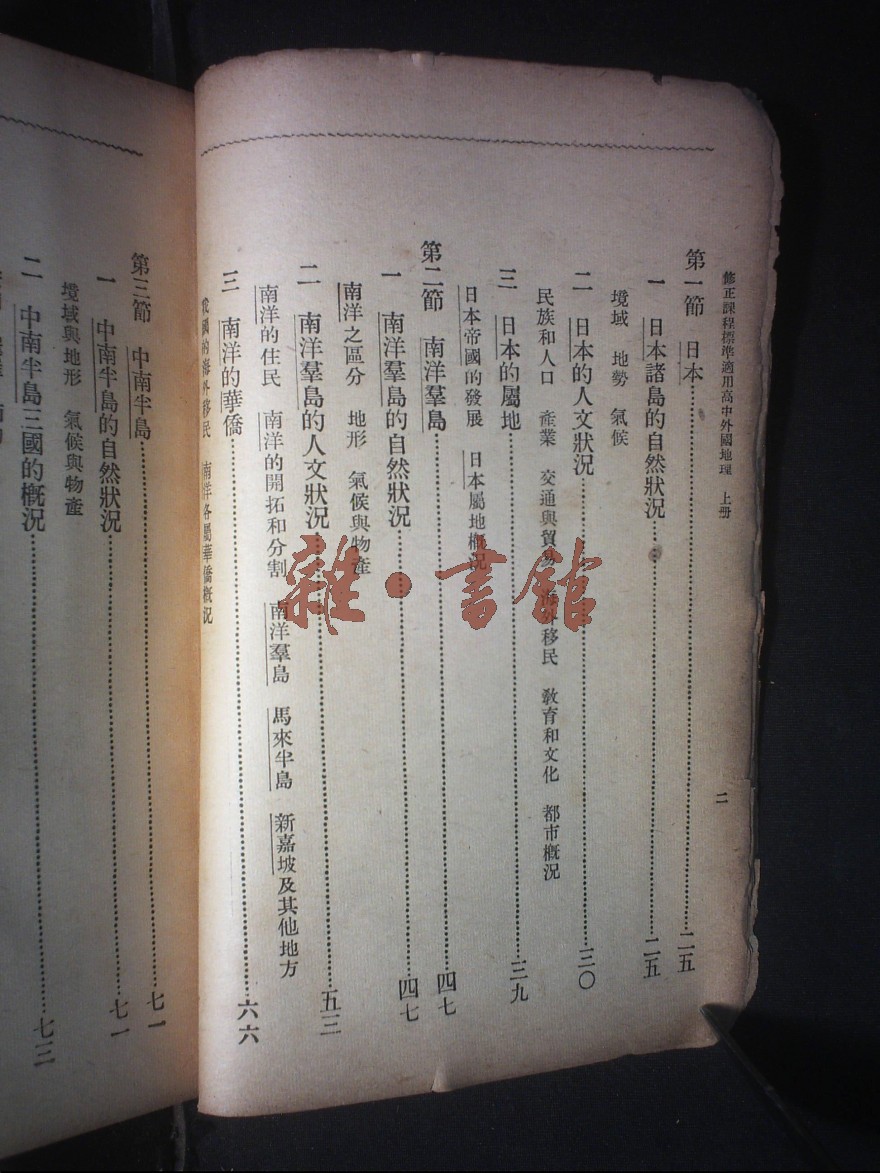 修正課程標準適用高中外國地理　上册
二
第一節　日本……二五
一　日本諸島的自然狀況……二五
境域　地勢　氣候
二　日本的人文狀況……三〇
民族和人口　產業　交通與貿易　海外移民　敎育和文化　都市概況
三　日本的屬地……三九
日本帝國的發展　日本屬地概況
第二節　南洋羣島……四七
一　南洋羣島的自然狀況……四七
南洋之區分　地形　氣候與物產
二　南洋羣島的人文狀況……五三
南洋的住民　南洋的開拓和分割　南洋羣島　馬來半島　新嘉坡及其他地方
三　南洋的華僑……六六
我國的海外移民　南洋各屬華僑概況
第三節　中南半島……七一
一　中南半島的自然狀況……七一
境域與地形　氣候與物產
二　中南半島三國的概況……七三
雜·書館